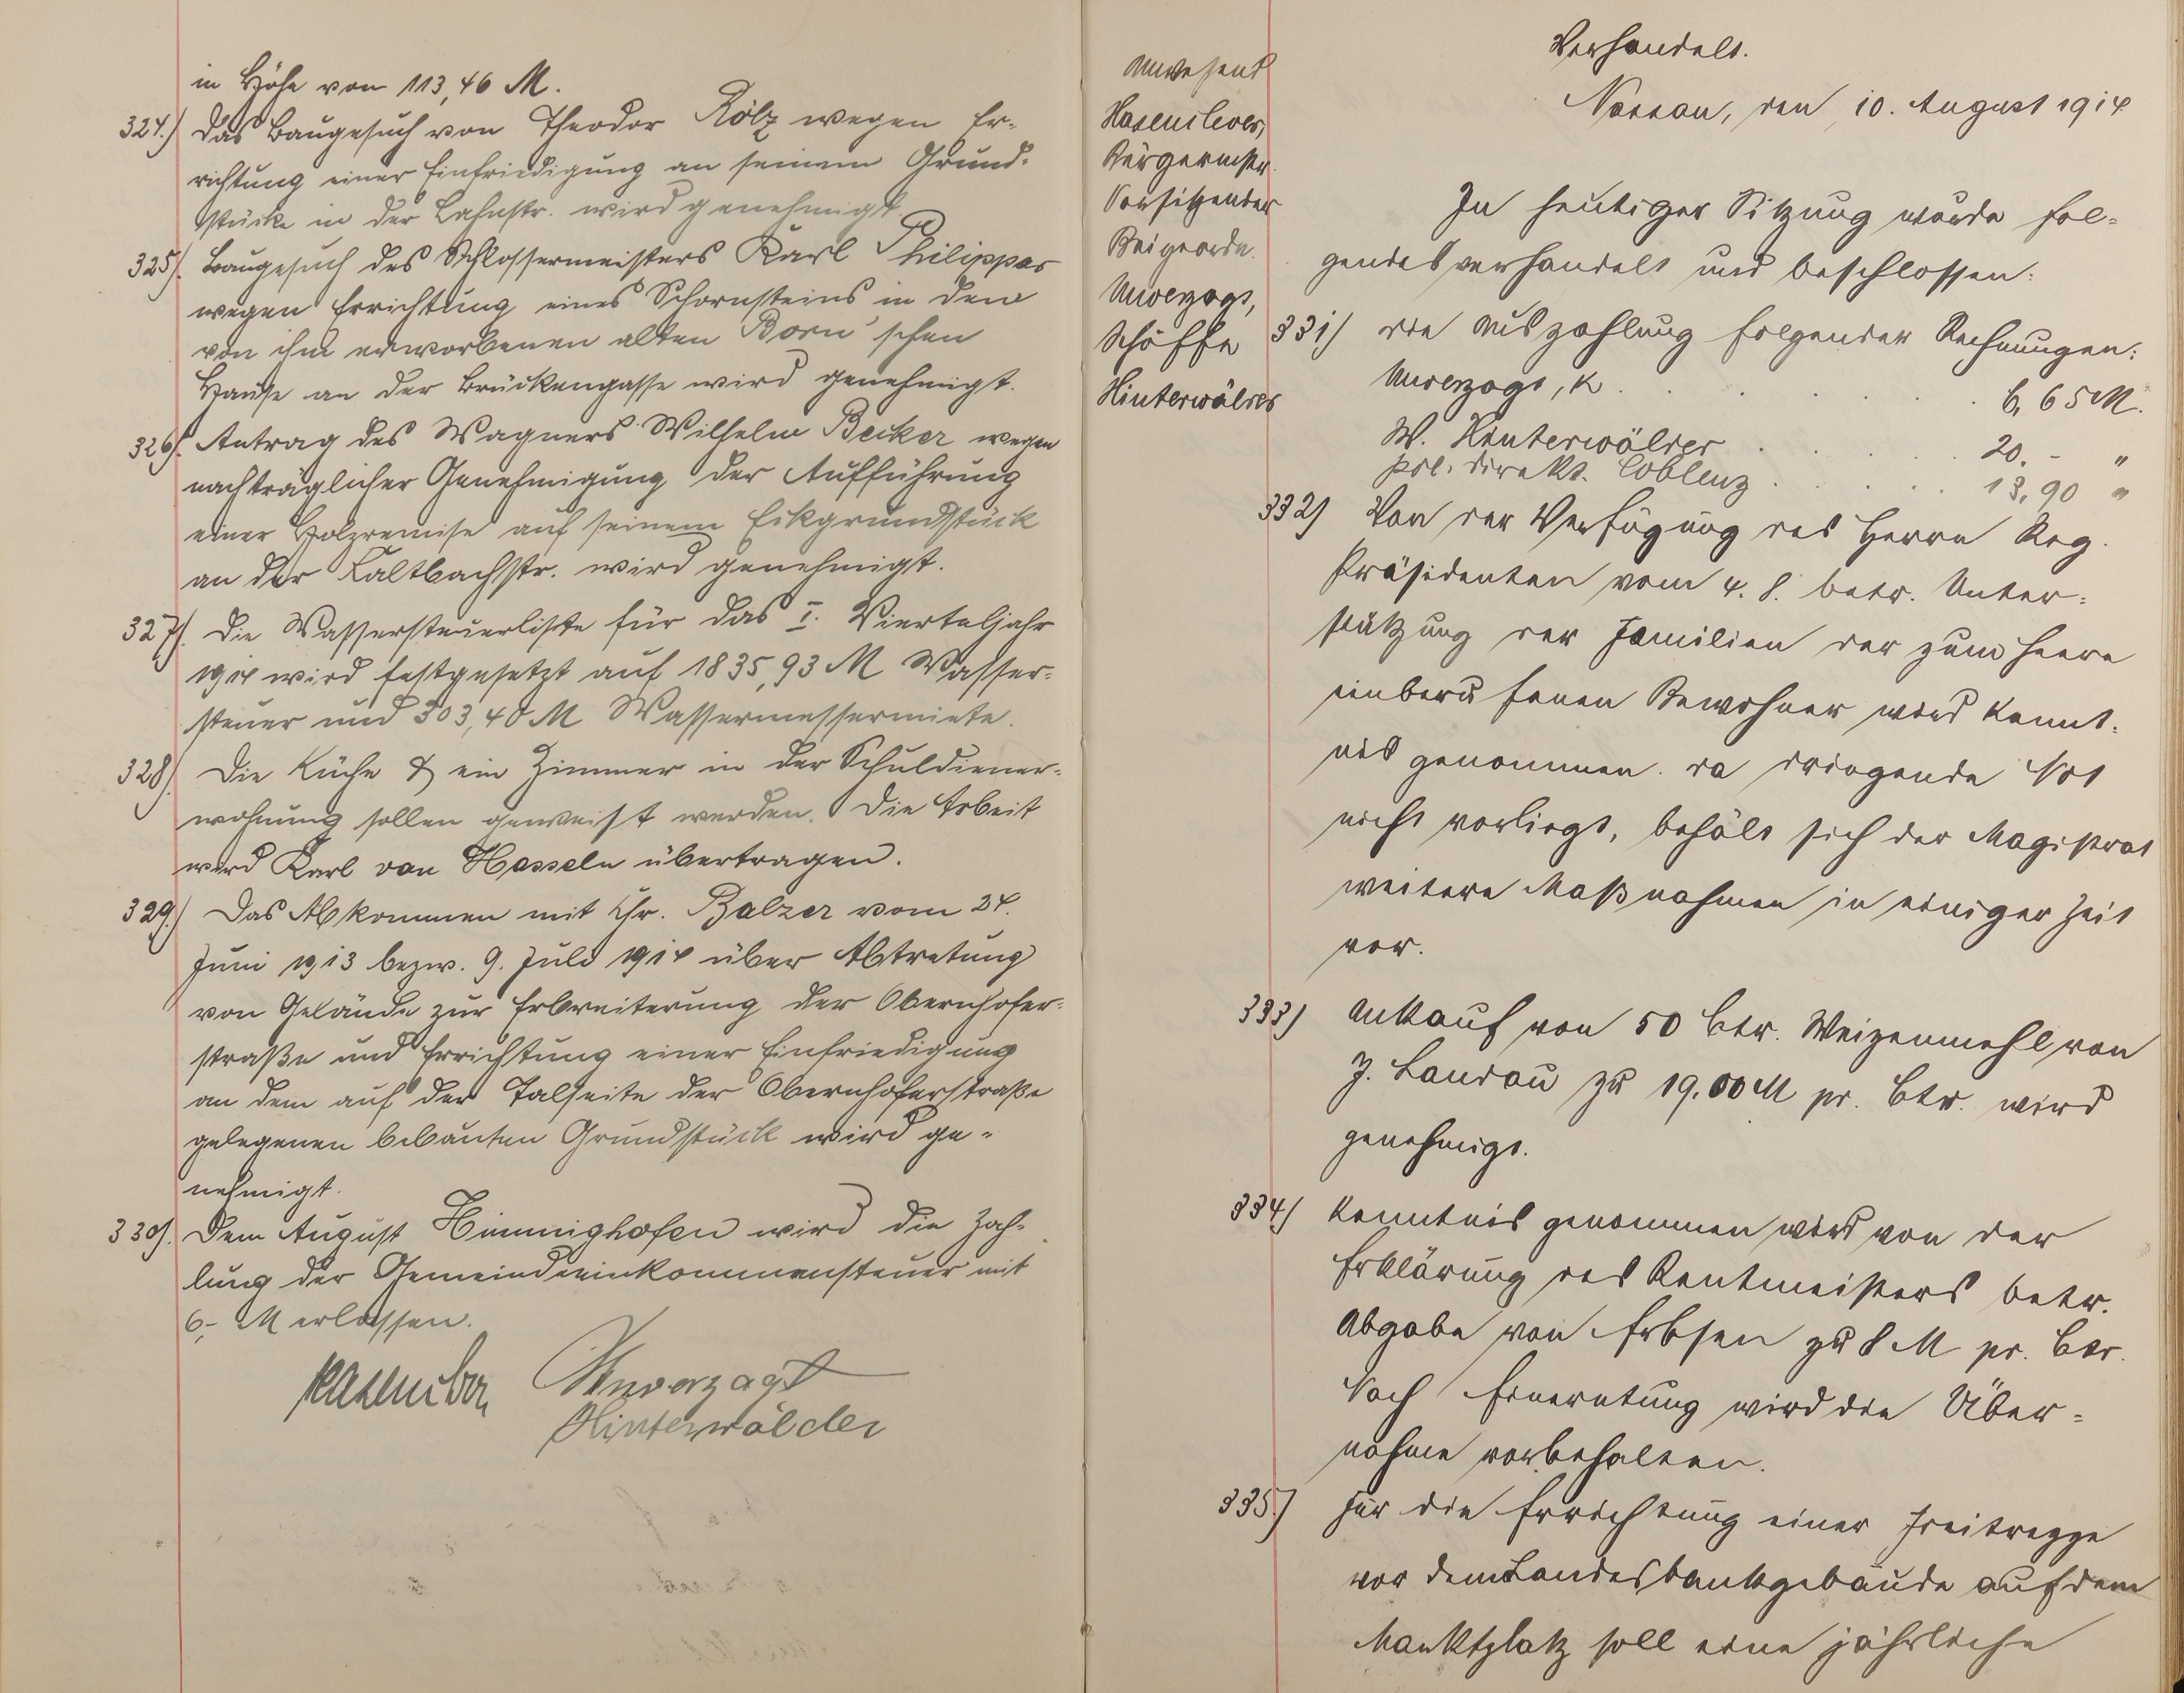 in Höhe von 113,46 M.
324.) Das Baugesuch von Theodor Rölz wegen Er-
richtung einer Einfriedigung an seinem Grund-
stücke in der Lahnstr. wird genehmigt
325). Baugesuch des Schlossermeisters Karl Philippar
wegen Errichtung eines Schornsteins in dem
von ihm erworbenen alten Born'schen
Hause an der Brückengasse wird genehmigt.
326). Antrag des Wagners Wilhelm Becker wegen
nachträglicher Genehmigung der Aufführung
einer Holzremise auf seinem Eckgrundstück
an der Kaltbachstr. wird genehmigt.
327). Die Wassersteuerliste für das I. Vierteljahr
1914 wird festgesetzt auf 1835,93 M Wasser-
steuer und 303,40 M Wassermessermiete.
328). Die Küche & ein Zimmer in der Schuldiener-
wohnung sollen geweißt werden. Die Arbeit
wird Karl von Hasseln übertragen.
329.) Das Abkommen mit Chr. Balzer vom 24.
Juni 1913 bezw. 9. Juli 1914 über Abtretung
von Gelände zur Erbreiterung der Obernhofer-
straße und Errichtung einer Einfriedigung
an dem auf der Talseite der Obernhoferstraße
gelegenen bebauten Grundstück wird ge-
nehmigt.
330). Dem August Himmighofen wird die Zah-
lung der Gemeindeeinkommensteuer mit
6,- M erlassen.
Hasenclever Unverzagt
Hinterwälder
Anwesend
Hasenclever,
Bürgermstr.
Vorsitzender
Beigeordn.
Unverzagt,
Schöffe
Hinterwälder
Verhandelt.
Nassau, den 10. August 1914
In heutiger Sitzung wurde fol-
gendes verhandelt und beschlossen:
331) die Auszahlung folgender Rechnungen:
Unverzagt, K. . . . . . 6,65 M.
W. Hinterwälder . . . . . 20.- "
Pol. Direkt. Coblenz . . . . . 13,90 "
332) Von der Verfügung des Herrn Reg.
Präsidenten vom 4. 8. betr. Unter-
stützung der Familien der zum Heere
einberufenen Bewohner wird Kennt-
nis genommen. Da dringende Not
nicht vorliegt, behält sich der Magistrat
weitere Maßnahmen in einiger Zeit
vor.
333) Ankauf von 50 Ctr. Weizenmehl von
J. Landau zu 19,00 M pr. Ctr. wird
genehmigt.
334) Kenntnis genommen wird von der
Erklärung des Rentmeisters betr.
Abgabe von Erbsen zu 8 M pr. Ctr.
Nach Einerntung wird die Über-
nahme vorbehalten.
335.) Für die Errichtung einer Freitreppe
vor dem Landesbankgebäude auf dem
Marktplatz soll eine jährliche